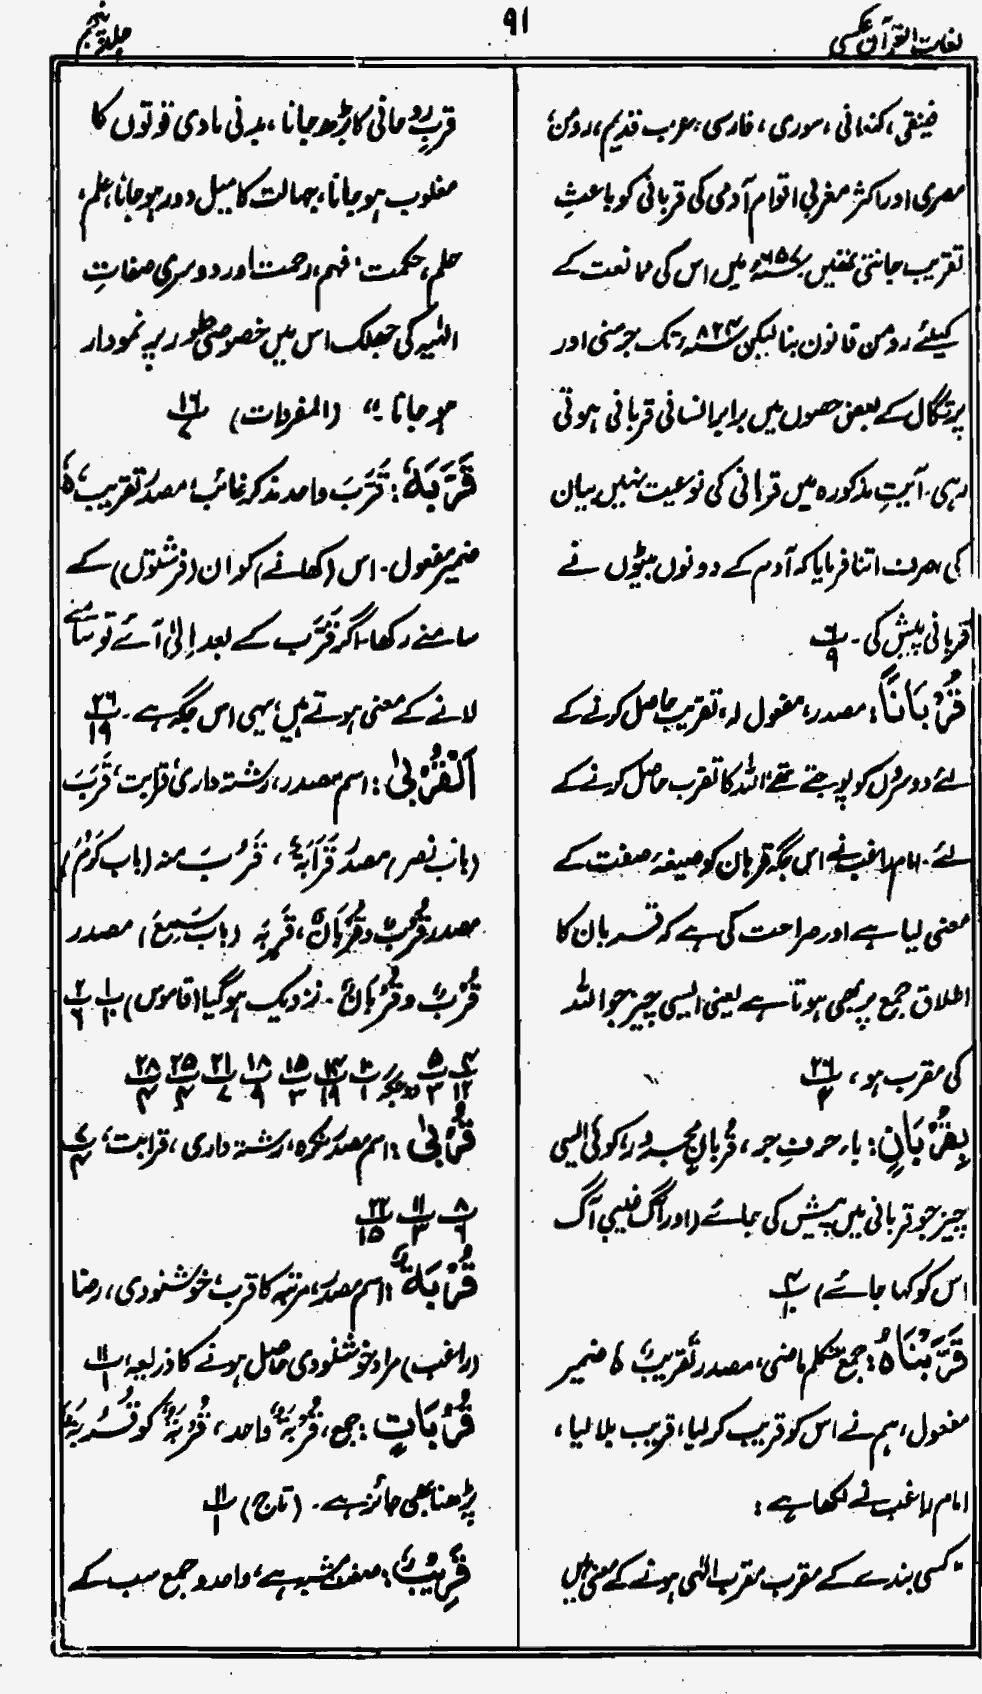 لغات القرآن عکسی
۹۱
جلد پنجم
فینقی، کنعانی، سوری، فارسی، عرب قدیم، رومن،
مصری اور اکثر مغربی اقوام آدمی کی قربانی کو باعثِ
تقریب جانتی تھیں ۶۵۷ء میں اس کی ممانعت کے
کیلئے رومن قانون بنا لیکن ۸۲۴ء تک جرمنی اور
پرتگال کے بعض حصوں میں برابر انسانی قربانی ہوتی
رہی۔ آیتِ مذکورہ میں قربانی کی نوعیت نہیں بیان
کی، صرف اتنا فرمایا کہ آدم کے دونوں بیٹوں نے
قربانی پیش کی۔ ۶/۹
قُرْبَانًا: مصدر، مفعول لہ، تقرب حاصل کرنے کے
لئے دوسروں کو پوجتے تھے، اللہ کا تقرب حاصل کرنے کے
لئے۔ امام راغب نے اس جگہ قربان کو صیغۂ صفت کے
معنی لیا ہے اور صراحت کی ہے کہ قربان کا
اطلاق جمع پر بھی ہوتا ہے یعنی ایسی چیز جو اللہ
کی مقرب ہو، ۲۶/۴
بِقُرْبَانٍ: بار حرفِ جر، قُربانٍ مجرور، کوئی ایسی
چیز جو قربانی میں پیش کی جائے (اور آگ غیبی آگ
اس کو کھا جائے) ۴/۱۰
قَرَّبْنَاہُ: جمع متکلم ماضی، مصدر تَقْرِیْبٌ ہٗ ضمیر
مفعول، ہم نے اس کو قریب کر لیا، قریب بلا لیا،
امام راغب نے لکھا ہے:
" کسی بندے کے مقرب مقرب الٰہی ہونے کے معنی ہیں
قربِ روحانی کا بڑھ جانا، بدنی مادی قوتوں کا
مغلوب ہو جانا، جہالت کا میل دور ہو جانا، علم،
حلم، حکمت، فہم، رحمت اور دوسری صفاتِ
الٰہیہ کی جھلک اس میں خصوصی طور پر نمودار
ہو جانا۔" (المفردات) ۱۶/۷
قَرَّبَہٗ: قَرَّبَ واحد مذکر غائب، مصدر تقریب، ہٗ
ضمیر مفعول۔ اس (کھانے) کو ان (فرشتوں) کے
سامنے رکھا۔ اگر قَرَّب کے بعد اِلیٰ آئے تو سامنے
لانے کے معنی ہوتے ہیں، یہی اس جگہ ہے۔ ۲۶/۱۹
اَلْقُرْبیٰ: اسم مصدر، رشتہ داری، قرابت، قَرَبَ
(باب نصر) مصدر قَرَابَۃٌ، قَرُبَ منہ (باب کَرُمَ)
مصدر قُرْبٌ و قُرْبَانٌ، قَرِبَہٗ (باب سَمِعَ) مصدر
قُرْبٌ و قُرْبَانٌ۔ نزدیک ہو گیا (قاموس) ۱/۱۰ ۲/۶
۴/۱۲ ۵/۳ دو جگہ ۱۰/۱ ۱۴/۱۹ ۱۵/۳ ۱۸/۹ ۲۱/۷ ۲۵/۴ ۲۸/۴
قُرْبیٰ: اسم مصدر نکرہ، رشتہ داری، قرابت، ۷/۴
۸/۶ ۱۱/۳ ۲۲/۱۵
قُرْبَۃٌ: اسم مصدر، مرتبہ کا قرب، خوشنودی، رضا
(راغب) مراد خوشنودی حاصل ہونے کا ذریعہ، ۱۱/۱
قُرُبَاتٍ: جمع، قُرْبَۃٌ واحد، قُرْبَۃٌ کو قُرُبَۃٌ
پڑھنا بھی جائز ہے۔ (تاج) ۱۱/۱
قَرِیْبٌ: صفت مشبہ ہے، واحد و جمع سب کے